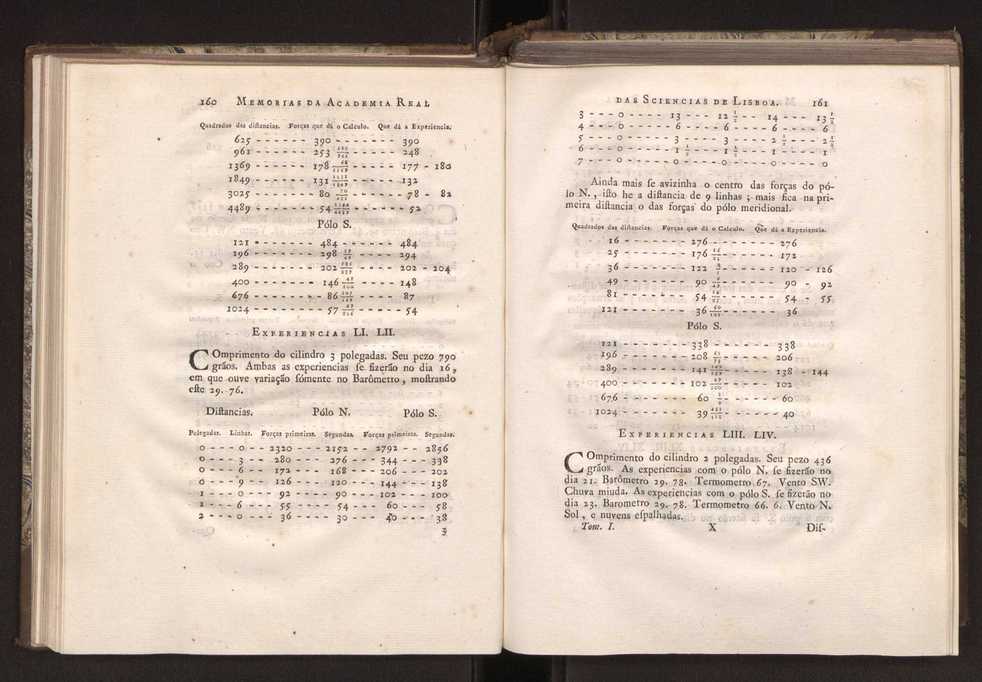 160 MEMORIAS DA ACADEMIA REAL
Quadrados das distancias. Forças que dá o Calculo. Que dá a Experiencia.
625 - - - - - - 390 - - - - - - - 390
961 - - - - - - 253 - - - - - - 248
1369 - - - - - - 178 - - - - - - 177 - 180
1849 - - - - - - 131 - - - - - - 132
3025 - - - - - - 80 - - - - - - 78 - 82
4489 - - - - - - 54 - - - - - - 52
Pólo S.
121 - - - - - - - 484 - - - - - - 484
196 - - - - - - - 298 - - - - - - 294
289 - - - - - - - 202 - - - - - - 202 - 204
400 - - - - - - - 146 - - - - - - 148
676 - - - - - - - 86 - - - - - - 87
1024 - - - - - - - 57 - - - - - - 54
EXPERIENCIAS LI. LII.
COmprimento do cilindro 3 polegadas. Seu pezo 790
grãos. Ambas as experiencias se fizerão no dia 16,
em que ouve variação sómente no Barômetro, mostrando
este 29. 76.
Distancias. Pólo N. Pólo S.
Polegadas. Linhas. Forças primeiras. Segundas. Forças primeiras. Segundas.
0 - - - 0 - - 2320 - - - 2152 - - 2792 - - 2856
0 - - - 3 - - 280 - - - 276 - - - 344 - - - 338
0 - - - 6 - - 172 - - - 168 - - - 206 - - - 202
0 - - - 9 - - 126 - - - 120 - - - 144 - - - 138
1 - - - 0 - - - 92 - - - 90 - - - 102 - - - 100
1 - - - 6 - - - 55 - - - 54 - - - 60 - - - 58
2 - - - 0 - - - 36 - - - 30 - - - 40 - - - 38
3
DAS SCIENCIAS DE LISBOA. 161
3 - - - 0 - - - - 13 - - - 12 1/2 - - 14 - - - 13 1/2
4 - - - 0 - - - - 6 - - - - 6 - - - - 6 - - - - 6
5 - - - 0 - - - - 3 - - - 3 - - - 2 1/2 - - - 2 1/2
6 - - - 0 - - - - 1 1/2 - - - 1 - - - 1 - - - - 1
7 - - - 0 - - - - 0 - - - - 0 - - - - 0 - - - - 0
Ainda mais se avizinha o centro das forças do pó-
lo N., isto he a distancia de 9 linhas; mais fica na pri-
meira distancia o das forças do pólo meridional.
Quadrados das distancias. Forças que dá o Calculo. Que dá a Experiencia.
16 - - - - - - - 276 - - - - - - - 276
25 - - - - - - - 176 - - - - - - 172
36 - - - - - - - 122 - - - - - - 120 - 126
49 - - - - - - - 90 - - - - - - 90 - 92
81 - - - - - - - 54 - - - - - - 54 - 55
121 - - - - - - - 36 - - - - - - 36
Pólo S.
121 - - - - - - - 338 - - - - - - - 338
196 - - - - - - - 208 - - - - - - 206
289 - - - - - - - 141 - - - - - - 138 - 144
400 - - - - - - - 102 - - - - - - 102
676 - - - - - - - 60 - - - - - - 60
1024 - - - - - - - 39 - - - - - - 40
EXPERIENCIAS LIII. LIV.
COmprimento do cilindro 2 polegadas. Seu pezo 436
grãos. As experiencias com o pólo N. se fizerão no
dia 21. Barômetro 29. 78. Termometro 67. Vento SW.
Chuva miuda. As experiencias com o pólo S. se fizerão no
dia 23. Barometro 29. 78. Termometro 66. 6. Vento N.
Sol, e nuvens espalhadas.
Tom. I. X Dis-